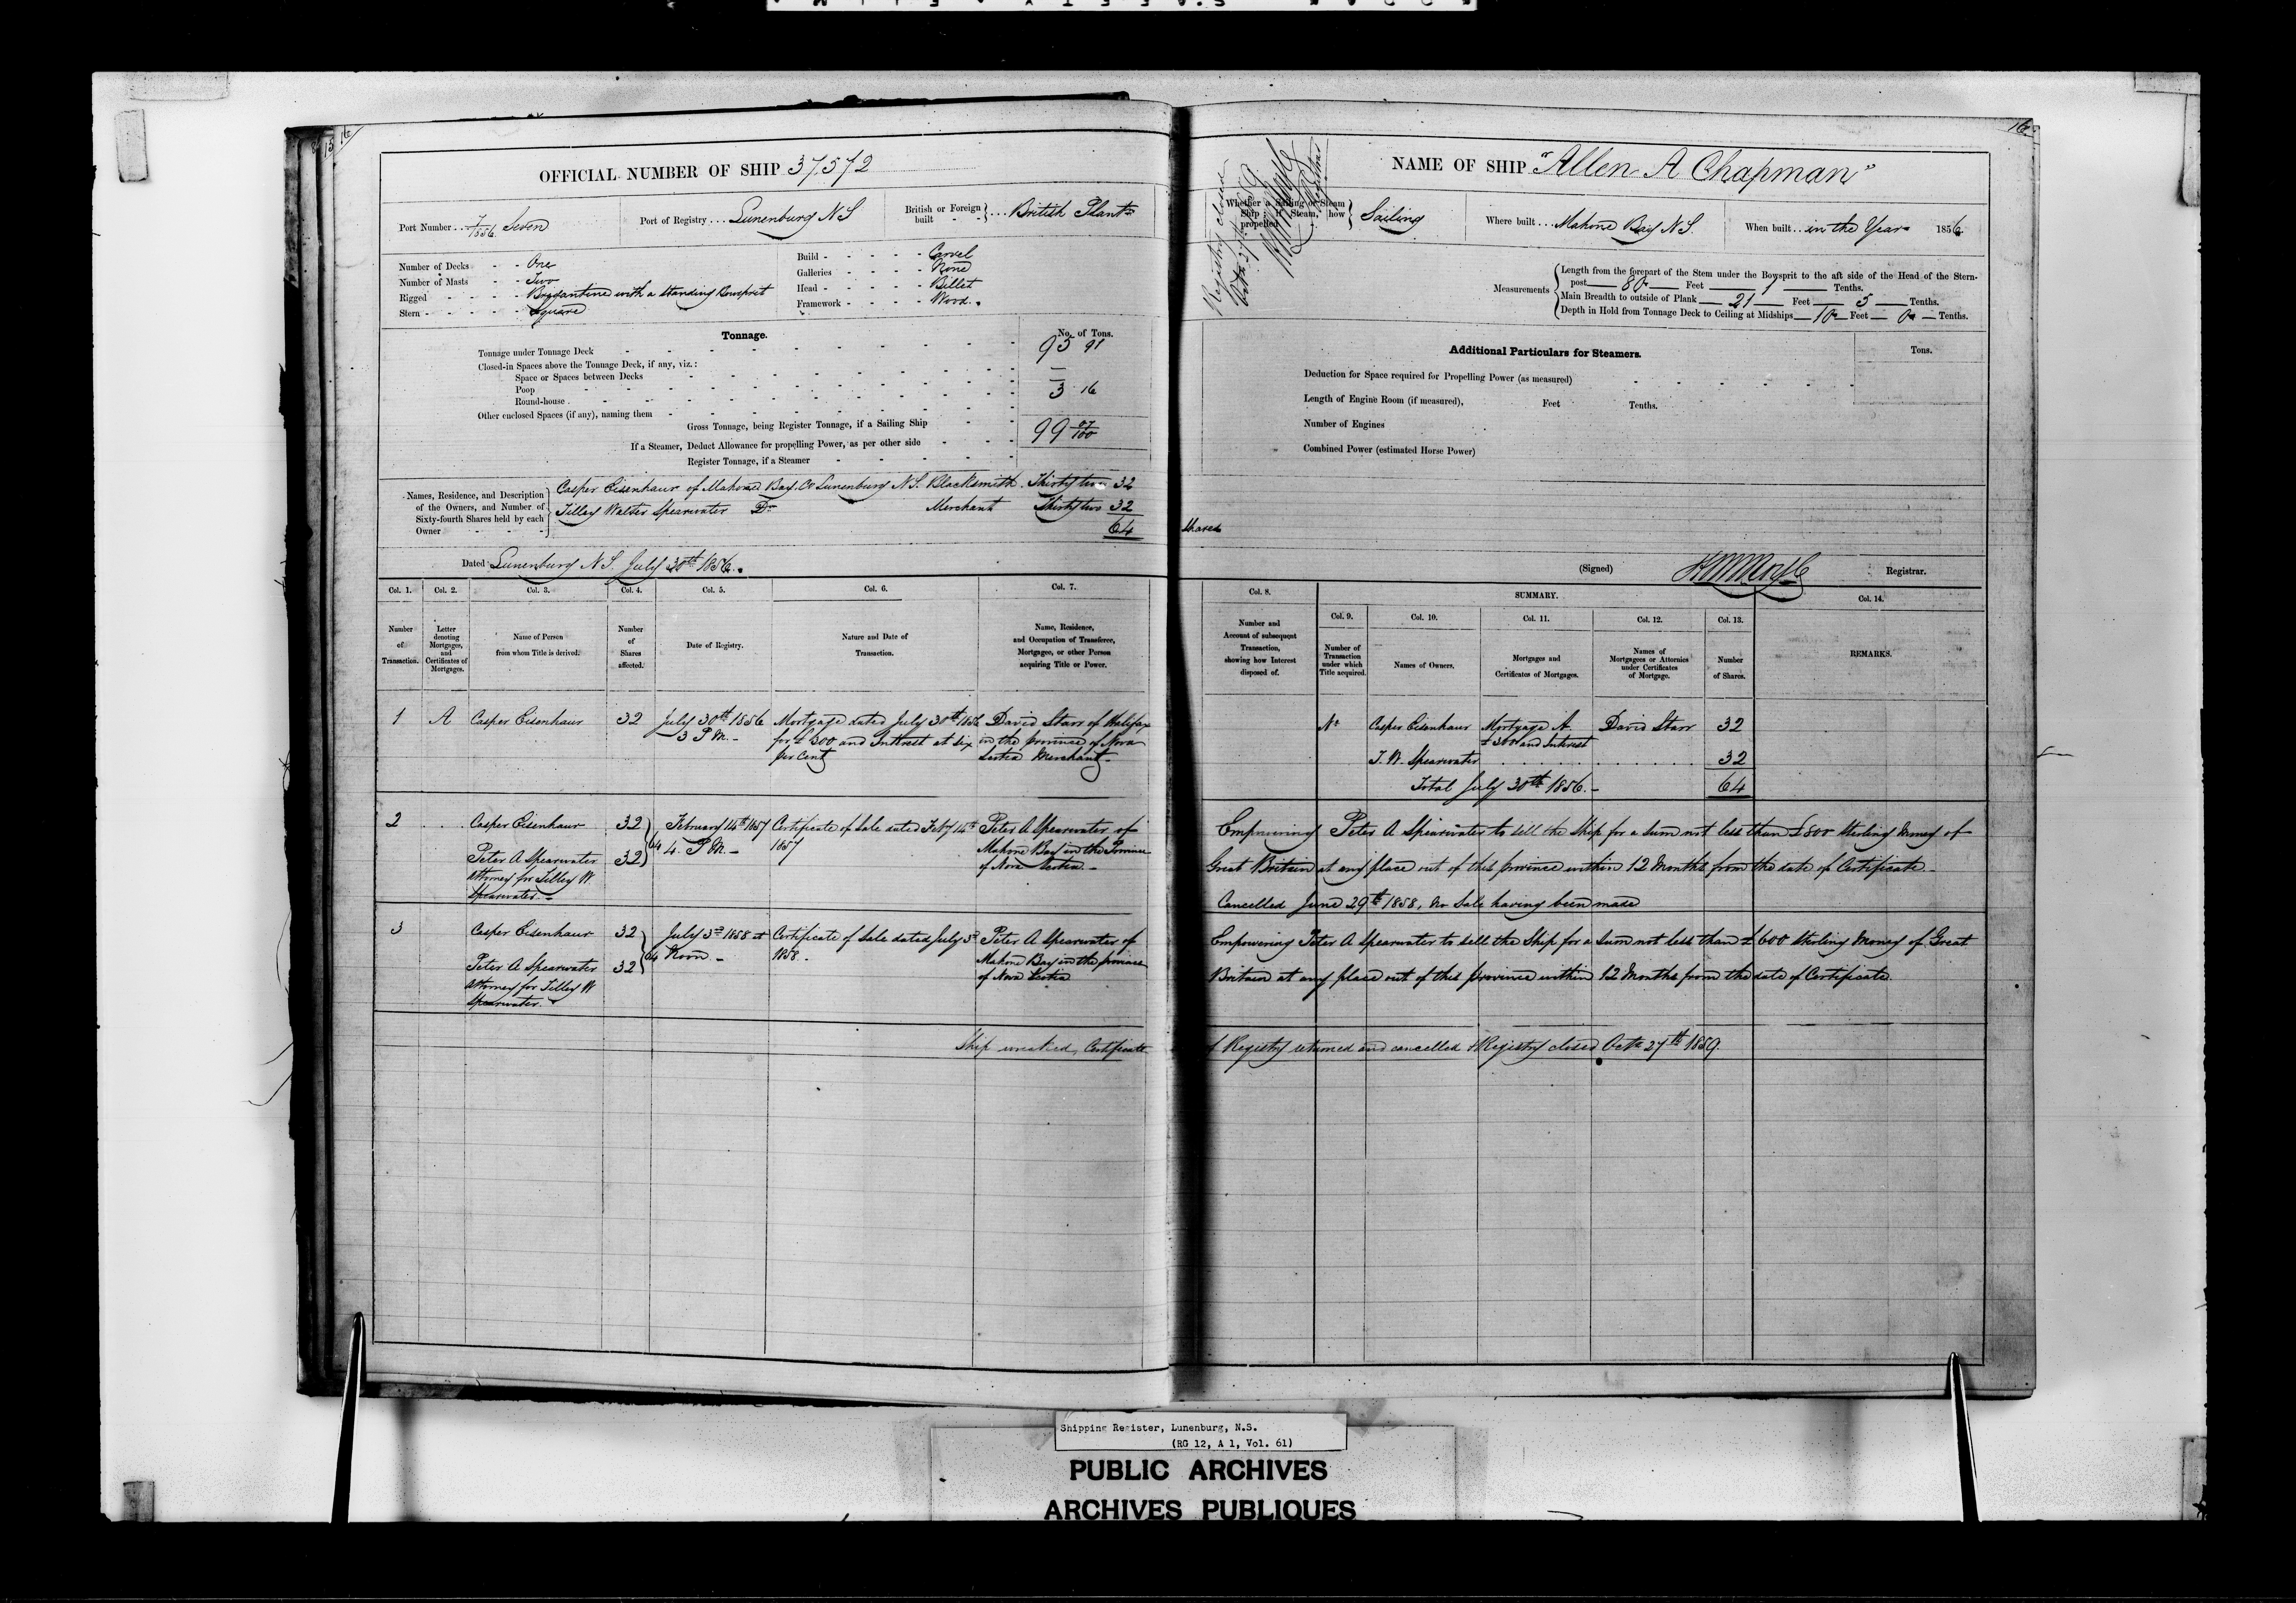 16
15
16
OFFICIAL NUMBER OF SHIP 37572
Port Number . . 7/1856. Seven
Port of Registry . . . Lunenburg N S
British or Foreign built } . . . British Plantn
Number of Decks - - One
Number of Masts - - Two
Rigged - - - - Brigantine with a standing Bowsprit
Stern - - - - - Square
Build - - - - - Carvel
Galleries - - - - None
Head - - - - - Billet
Framework - - - - Wood.
Tonnage.
No. of Tons.
Tonnage under Tonnage Deck 95 91
Closed-in Spaces above the Tonnage Deck, if any, viz.:
Space or Spaces between Decks —
Poop —
Round-house 3 16
Other enclosed Spaces (if any), naming them
Gross Tonnage, being Register Tonnage, if a Sailing Ship 99 07/100
If a Steamer, Deduct Allowance for propelling Power, as per other side
Register Tonnage, if a Steamer
Names, Residence, and Description of the Owners, and Number of Sixty-fourth Shares held by each Owner
Casper Eisenhaur of Mahone Bay. Co Lunenburg N.S. Blacksmith. Thirty two 32
Tilley Walter Spearwater Do Merchant Thirty two 32
64 Shares
Dated Lunenburg N S. July 30th 1856.
Col. 1. Col. 2. Col. 3. Col. 4. Col. 5. Col. 6. Col. 7.
Number of Transaction.
Letter denoting Mortgages, and Certificates of Mortgages.
Name of Person from whom Title is derived.
Number of Shares affected.
Date of Registry.
Nature and Date of Transaction.
Name, Residence, and Occupation of Transferee, Mortgagee, or other Person acquiring Title or Power.
1 A Casper Eisenhaur 32 July 30th 1856 Mortgage dated July 30th 1856 David Starr of Halifax
3 P M. - for £300 and Interest at six in the province of Nova
per cent Scotia Merchant -
2 . . . Casper Eisenhaur 32 February 14th 1857 Certificate of Sale dated Feby 14th Peter A Spearwater of
Peter A Spearwater 32 } 64 4. P M - 1857 Mahone Bay in the Province
Attorney for Tilley W of Nova Scotia. -
Spearwater. -
3 Casper Eisenhaur 32 July 3rd 1858 at Certificate of Sale dated July 3rd Peter A Spearwater of
Peter A Spearwater 32 } 64 Noon - 1858. Mahone Bay in the province
Attorney for Tilley W of Nova Scotia
Spearwater.
NAME OF SHIP "Allen A Chapman"
Registry closed
Octr 27th 1859
Registrar
Whether a Sailing or Steam Ship; if Steam, how propelled } Sailing
Where built . . . Mahone Bay N S.
When built . . in the Year 1856.
Measurements
Length from the forepart of the Stem under the Bowsprit to the aft side of the Head of the Stern-
post — 80 — Feet — 7 — Tenths.
Main Breadth to outside of Plank — 21 — Feet — 5 — Tenths.
Depth in Hold from Tonnage Deck to Ceiling at Midships — 10 — Feet — 0 — Tenths.
Additional Particulars for Steamers.
Tons.
Deduction for Space required for Propelling Power (as measured)
Length of Engine Room (if measured), Feet Tenths.
Number of Engines
Combined Power (estimated Horse Power)
(Signed) Registrar.
Col. 8. SUMMARY. Col. 14.
Col. 9. Col. 10. Col. 11. Col. 12. Col. 13.
Number and Account of subsequent Transaction, showing how Interest disposed of.
Number of Transaction under which Title acquired.
Names of Owners.
Mortgages and Certificates of Mortgages.
Names of Mortgagees or Attornies under Certificates of Mortgage.
Number of Shares.
REMARKS.
Casper Eisenhaur Mortgage A. David Starr 32
£300 and Interest
T. W. Spearwater . . . . . . . . . . 32
Total July 30th 1856. - 64
Empowering Peter A Spearwater to sell the Ship for a sum not less than £800 Sterling Money of
Great Britain at any place out of this province within 12 Months from the date of Certificate -
Cancelled June 29th 1858, no Sale having been made
Empowering Peter A Spearwater to sell the Ship for a Sum not less than £600 Sterling Money of Great
Britain at any place out of this province within 12 Months from the date of Certificate.
Ship wrecked, Certificate of Registry returned and cancelled & Registry closed Octr 27th 1859
Shipping Register, Lunenburg, N.S.
(RG 12, A 1, Vol. 61)
PUBLIC ARCHIVES
ARCHIVES PUBLIQUES